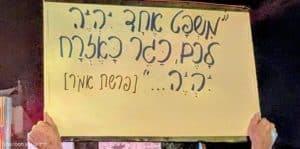 "מִשְׁפַּט אֶחָד יִהְיֶה
לָכֶם, כַּגֵּר כָּאֶזְרָח
יִהְיֶה..." [פרשת אמר]